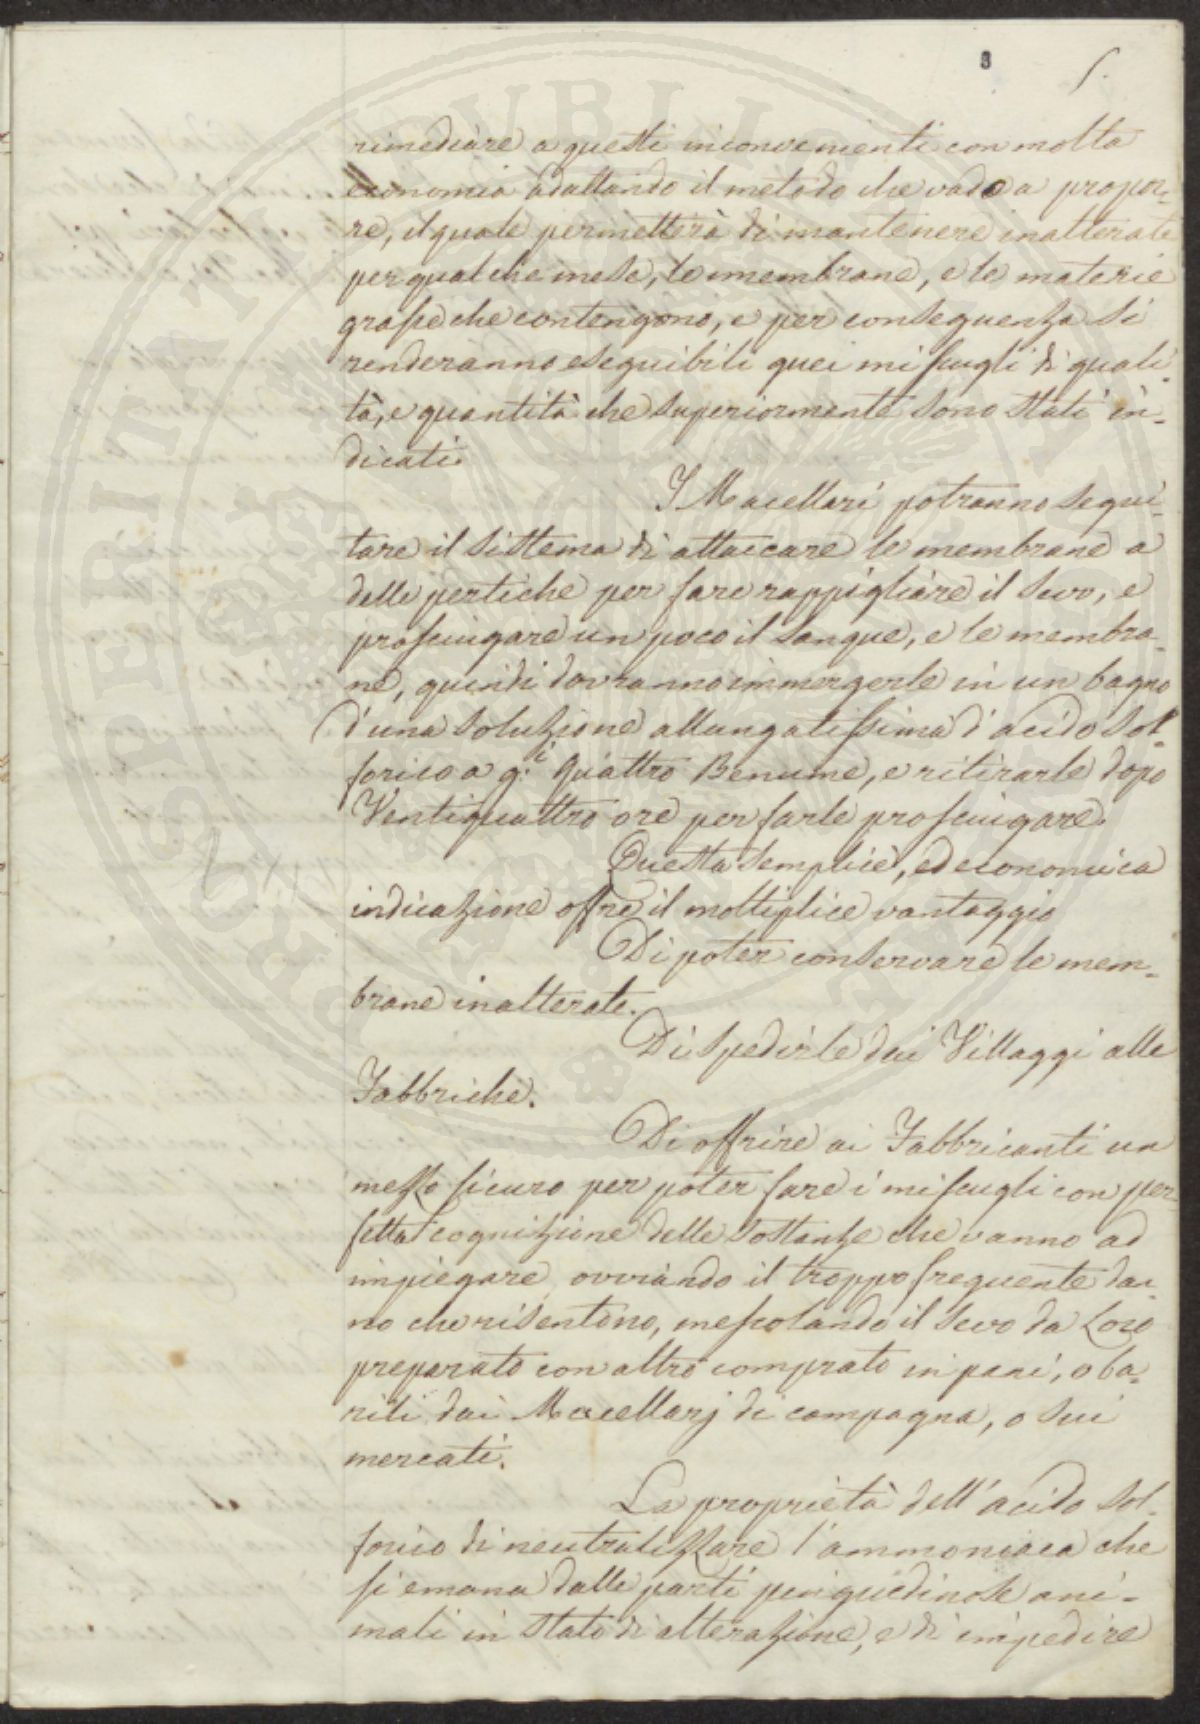 8 5.
rimediare a questi inconvenienti con molta
economia adattando il metodo che vado a propor=
re, il quale permetterà di mantenere inalterate
per qualche mese, le membrane, e le materie
grasse che contengono, e per conseguenza si
renderanno eseguibili quei miscugli di quali=
tà, e quantità che superiormente sono stati in=
dicati.
I Macellari potranno segui=
tare il sistema di attaccare le membrane a
delle pertiche per fare rappigliare il sevo, e
prosciugare un poco il sangue, e le membra=
ne, quindi dovranno immergerle in un bagno
d'una soluzione allungatissima d'acido sol=
forico a g.i quattro Benume, e ritirarle dopo
Ventiquattro ore per farle prosciugare.
Questa semplice, ed economica
indicazione offre il moltiplice vantaggio
Di poter conservare le mem=
brane inalterate.
Di spedirle dai Villaggi alle
Fabbriche.
Di offrire ai Fabbricanti un
mezzo sicuro per poter fare i miscugli con per=
fetta cognizione delle sostanze che vanno ad
impiegare, ovviando il troppo frequente dan
no che risentono, mescolando il sevo da Loro
preparato con altro comprato in pani, o ba=
rili dai Macellarj di campagna, o sui
mercati.
La proprietà dell'acido sol=
forico di neutralizzare l'ammoniaca che
si emana dalle parti pinguedinose ani=
mali in stato di alterazione, e di impedire
PROSPERITATI PUBLICAE